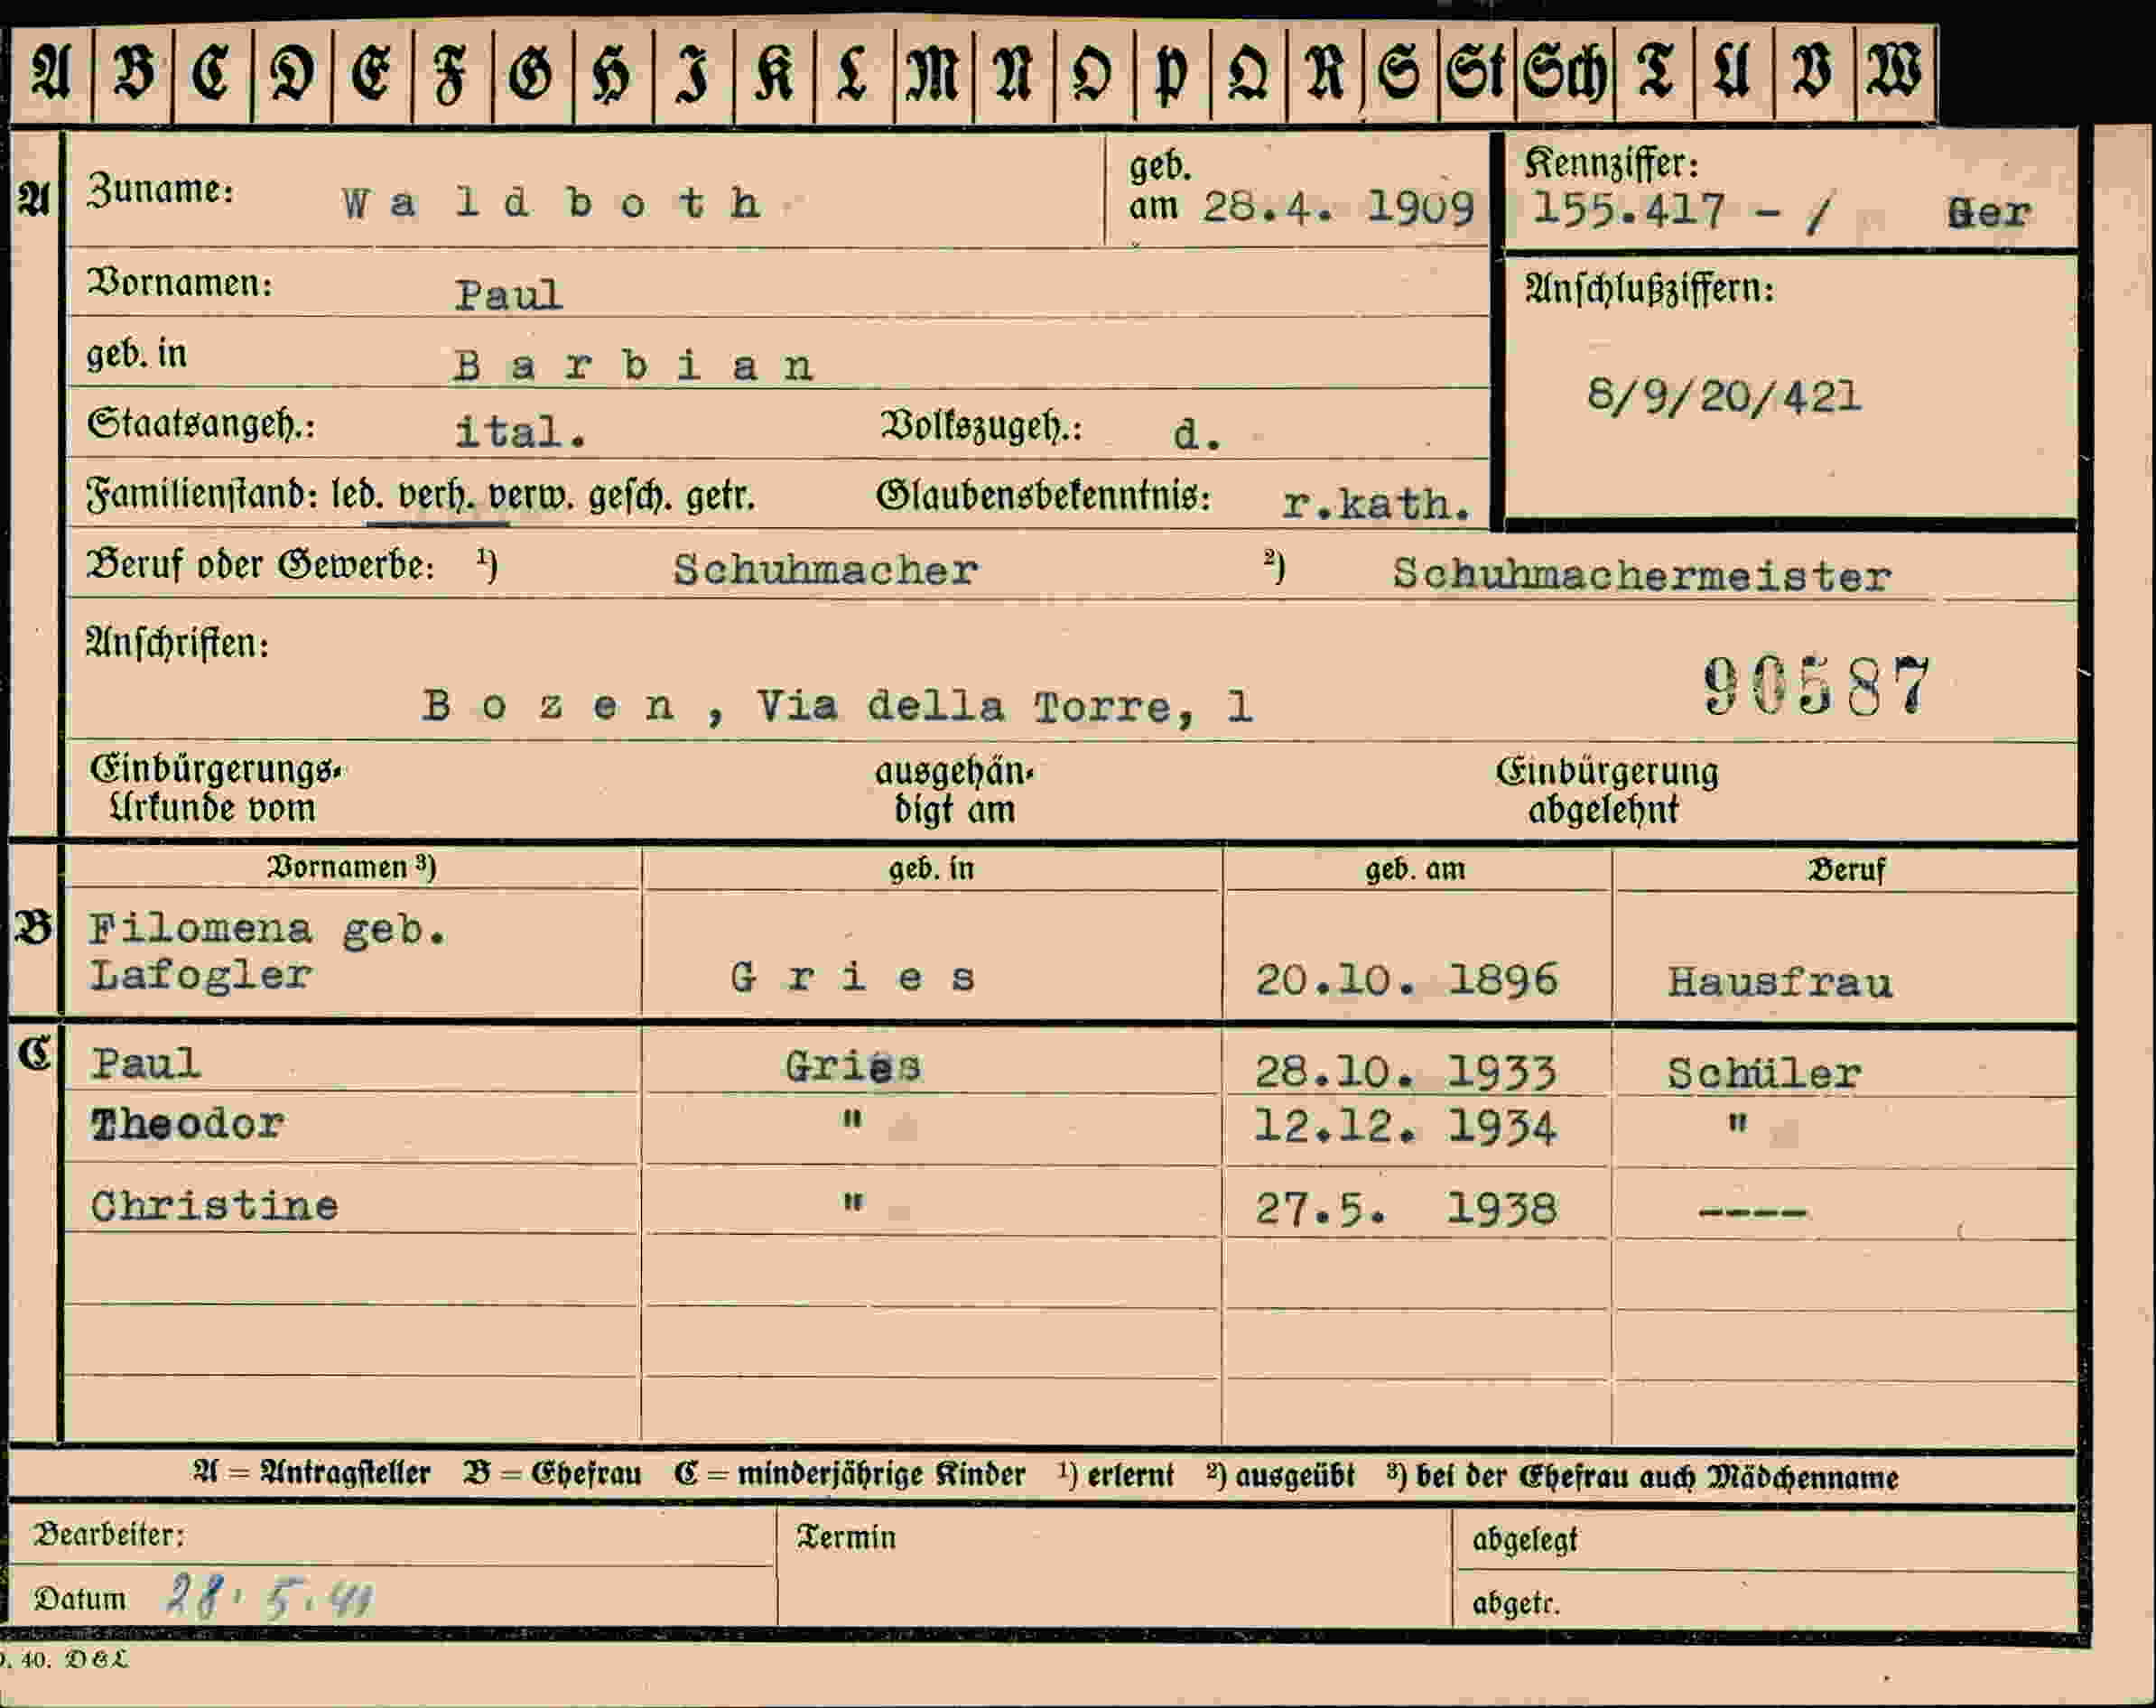 A B C D E F G H I K L M N O P Q R S St Sch T U V W
A Zuname: Waldboth geb. am 28.4. 1909 Kennziffer: 155.417 - / Ger
Vornamen: Paul Anschlußziffern:
geb. in Barbian 8/9/20/421
Staatsangeh.: ital. Volkszugeh.: d.
Familienstand: led. verh. verw. gesch. getr. Glaubensbekenntnis: r.kath.
Beruf oder Gewerbe: ¹) Schuhmacher ²) Schuhmachermeister
Anschriften:
Bozen, Via della Torre, 1 90587
Einbürgerungs- ausgehän- Einbürgerung
Urkunde vom digt am abgelehnt
Vornamen ³) geb. in geb. am Beruf
B Filomena geb.
Lafogler Gries 20.10. 1896 Hausfrau
C Paul Gries 28.10. 1933 Schüler
Theodor " 12.12. 1934 "
Christine " 27.5. 1938 ----
A = Antragsteller B = Ehefrau C = minderjährige Kinder ¹) erlernt ²) ausgeübt ³) bei der Ehefrau auch Mädchenname
Bearbeiter: Termin abgelegt
Datum 28.5.41 abgetr.
40. D&L